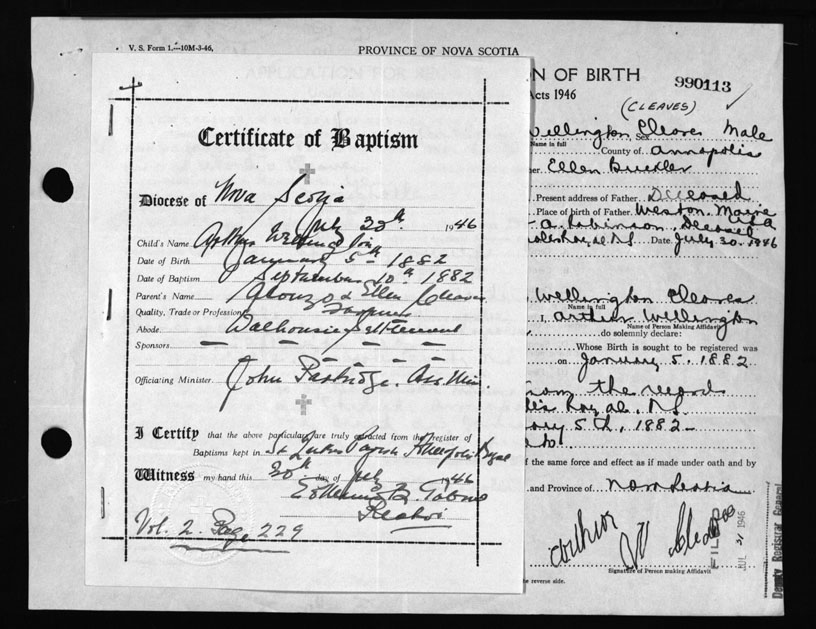 V. S. Form 1.—10M-3-46,
PROVINCE OF NOVA SCOTIA
N OF BIRTH
990113
Acts 1946
(CLEAVES)
Certificate of Baptism
Diocese of Nova Scotia
July 30th 1946
Child's Name Arthur
Date of Birth January 5th 1882
Date of Baptism September 10th 1882
Parent's Name Alonzo & Ellen Cleaves
Quality, Trade or Profession Farmer
Abode Dalhousie Settlement
Sponsors — — — — —
Officiating Minister John Partridge. Ass. Min.
I Certify that the above particulars are truly extracted from the register of
Baptisms kept in St Lukes Parish Annapolis Royal
Witness my hand this 30th day of July 1946
Rector
Vol. 2. Page 229
Wellington Cleaves Sex Male
Name in full
County of Annapolis
Ellen Buckler
Present address of Father Deceased
Place of birth of Father Weston, Maine USA
Robinson, Deceased
Date July 30, 1946
Wellington Cleaves
Name in full
I, Arthur Wellington
Name of Person Making Affidavit
do solemnly declare:
Whose Birth is sought to be registered was
on January 5, 1882
from the record
Royal, N.S.
5th, 1882—
f the same force and effect as if made under oath and by
and Province of Nova Scotia
Arthur W Cleaves
Signature of Person making Affidavit
e reverse side.
FILED
JUL 31 1946
Deputy Registrar General